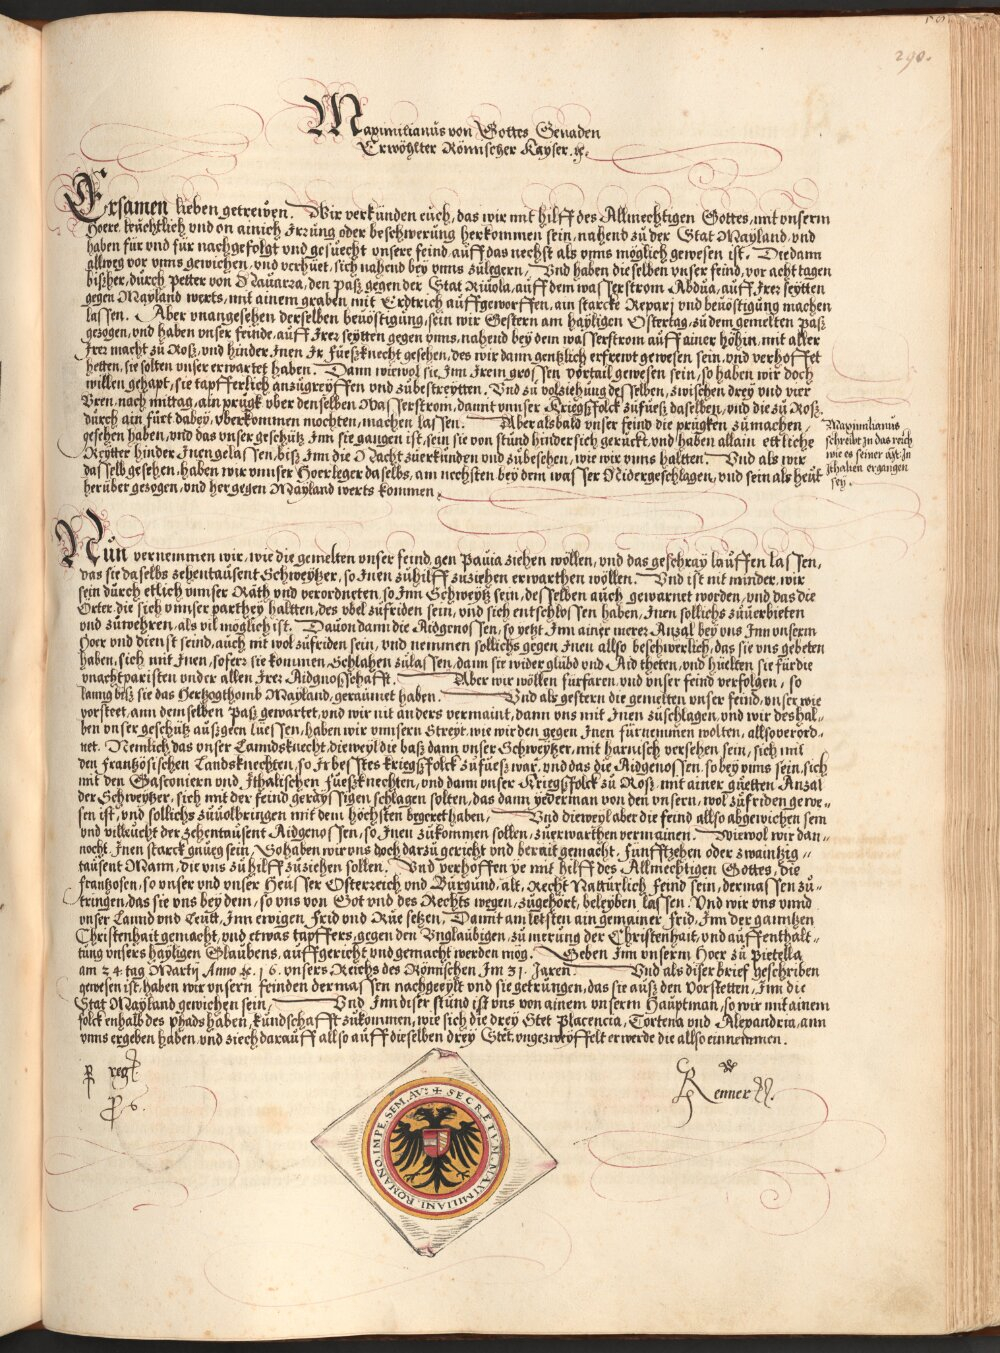 290.
Maximilianus von Gottes Genaden
Erwöhlter Römischer Kayser. ꝛc.
Ersamen lieben getrewen. Wir verkünden euch, das wir mit hilff des Allmechtigen Gottes, mit vnserm
Hoere, trüchtlich vnd on ainich Irrung oder beschwerung herkommen sein, nahend zu der Stat Mayland, vnd
haben für vnd für nachgefolgt vnd gesuecht vnsere feind, auff das nechst als vnns möglich gewesen ist. Die dann
allweg vor vnns gewichen, vnd verhüet, sich nahend bey vnns zulegern, Vnd haben die selben vnser feind, vor acht tagen
bißher, durch Petter von Nauarra, den Paß gegen der Stat Riuola, auff dem wasserstrom Abdua, auff Irer seytten
gegen Mayland werts, mit ainem graben mit Erdtrich auffgeworffen, ain starcke Reparj vnd beuöstigung machen
lassen. Aber vnangesehen derselben beuöstigung, sein wir Gestern am hayligen Ostertag, zu dem gemelten Paß
gezogen, vnd haben vnser feinde, auff Irer seytten gegen vnns, nahend bey dem wasserstrom auff ainer höhin, mit aller
Irer macht zu Roß, vnd hinder Inen Ir fueßknecht gesehen, des wir dann gentzlich erfrewt gewesen sein, vnd verhoffet
hetten, sie solten vnser erwartet haben. Dann wiewol sie Inn Irem grossen vortail gewesen sein, so haben wir doch
willen gehapt, sie tapfferlich anzugreyffen vnd zubestreytten. Vnd zu volziehung desselben, zwischen drey vnd vier
Vren, nach mittag, ain prugk vber denselben Wasserstrom, damit vnnser Kriegßfolck zufueß daselben, vnd die zu Roß
durch ain furt dabey, vberkommen mochten, machen lassen. Aber alsbald vnser feind die prugken zumachen,
gesehen haben, vnd das vnser geschütz Inn sie gangen ist, sein sie von stund hindersich geruckt, vnd haben allain ettliche
Reytter hinder Inen gelassen, biß Inn die Nacht zuerkünden vnd zubesehen, wie wir vnns haltten. Vnd als wir
dasselb gesehen, haben wir vnnser Hoerleger daselbs, am nechsten bey dem wasser Nidergeschlagen, vnd sein als heüt
herüber gezogen, vnd her gegen Mayland werts kommen.
Maximilianus
schreibt zu das reich
wie es seiner Mayt: In
Ithalien ergangen
sey.
Nun vernemmen wir, wie die gemelten vnser feind, gen Pauia ziehen wöllen, vnd das geschray lauffen lassen,
das sie daselbs zehentausent Schweytzer, so Inen zuhilff zuziehen erwarthen wöllen. Vnd ist nit minder, wir
sein durch etlich vnnser Räth vnd verordneten, so Inn Schweytz sein, desselben auch gewarnet worden, vnd das die
Örter, die sich vnnser parthey haltten, des vbel zufriden sein, vnd sich entschlossen haben, Inen sollichs zuuerbieten
vnd zuwehren, als vil möglich ist. Dauon dann die Aidgnossen, so yetzt Inn ainer merer Anzal bey vns Inn vnserm
Hoer vnd dienst seind, auch nit wol zufriden sein, vnd nemmen sollichs gegen Inen allso beschwerlich, das sie vns gebeten
haben, sich mit Inen, sofer sie kommen, Schlahen zulassen, dann sie wider glübd vnd Aid theten, vnd hüelten sie für die
vnachtparisten vnder allen Irer Aidgnoßschafft. Aber wir wöllen fürfaren, vnd vnser feind verfolgen, so
lanng biß sie das Hertzogthomb Mayland, geraumet haben. Vnd als gestern die gemelten vnser feind, vnser wie
vorsteet, ann dem selben Paß gewartet, vnd wir nit anders vermaint, dann vns mit Inen zuschlagen, vnd wir deshal-
ben vnser geschütz außgeen liessen, haben wir vnnsern Streyt, wie wir den gegen Inen fürnemmen wolten, allso verörd-
net. Nemlich das vnser Lanndsknecht, dieweyl die baß dann vnser Schweytzer, mit harnisch versehen sein, sich mit
den frantzösischen Landsknechten, so Ir besstes kriegßfolck zufueß war, vnd das die Aidgnossen, so bey vnns sein, sich
mit den Gasconiern vnd Ithalischen fueßknechten, vnd dann vnser Kriegßfolck zu Roß, mit ainer guetten Anzal
der Schweytzer, sich mit der feind geraysigen schlagen solten, das dann yederman von den vnsern, wol zufriden gewe-
sen ist, vnd sollichs zuuolbringen mit dem höchsten begeret haben, Vnd dieweyl aber die feind allso abgewichen sein
vnd villeücht der zehentausent Aidgnossen, so Inen zukommen sollen, zuerwarthen vermainen. Wiewol wir dan-
nocht Inen starck gnueg sein, So haben wir vns doch darzu gericht vnd berait gemacht, funffzehen oder zwaintzig
tausent Mann, die vns zuhilff zuziehen sollen. Vnd verhoffen ye mit hilff des Allmechtigen Gottes, die
frantzosen, so vnser vnd vnser Heüsser Osterreich vnd Burgund, alt, Recht Nattürlich feind sein, dermassen zu-
tringen, das sie vns bey dem, so vns von Got vnd des Rechts wegen, zugehört, beleyben lassen. Vnd wir vns vnnd
vnser Lannd vnd Leütt, Inn ewigen frid vnd Rue setzen. Damit am letsten ain gemainer frid, Inn der ganntzen
Christenhait gemacht, vnd etwas tapffers, gegen den Vnglaubigen, zu merung der Christenhait, vnd auffenthalt-
tung vnsers hayligen Glaubens, auffgericht vnd gemacht werden mög. Geben Inn vnserm Hoer zu Pietella
am 24. tag Martij Anno ꝛc. 16. vnsers Reichs des Römischen Im 31. Jaren. Vnd als diser brief geschriben
gewesen ist, haben wir vnsern feinden dermassen nachgeeylt vnd sie getrungen, das sie auß den Vorstetten, Inn die
Stat Mayland gewichen sein, Vnd Inn diser stund ist vns von ainem vnserm Hauptman, so wir mit ainem
folck enhalb des Phads haben, kundschafft zukommen, wie sich die drey Stet Placencia, Tortena vnd Alexandria, ann
vnns ergeben haben, vnd ziech darauff allso auff dieselben drey Stet, vngezweyffelt er werde die allso einnemmen.
p regē
p s.
Renner
✢ SECRETVM. MAXIMILIANI. ROMANO. IMPE. SEM. AV: